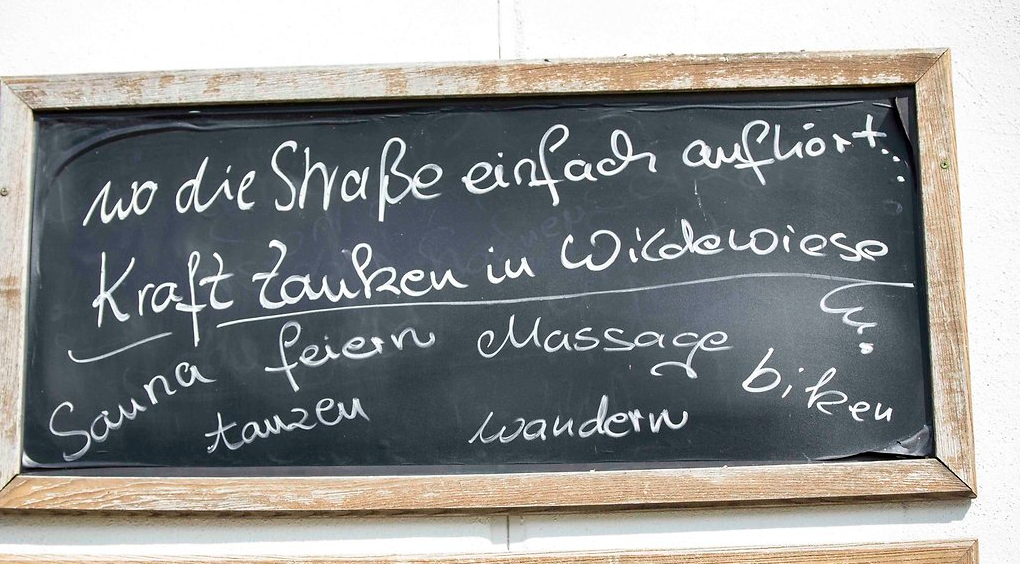 wo die Straße einfach aufhört...
Kraft tanken in Wildewiese
Sauna feiern Massage biken
tanzen wandern